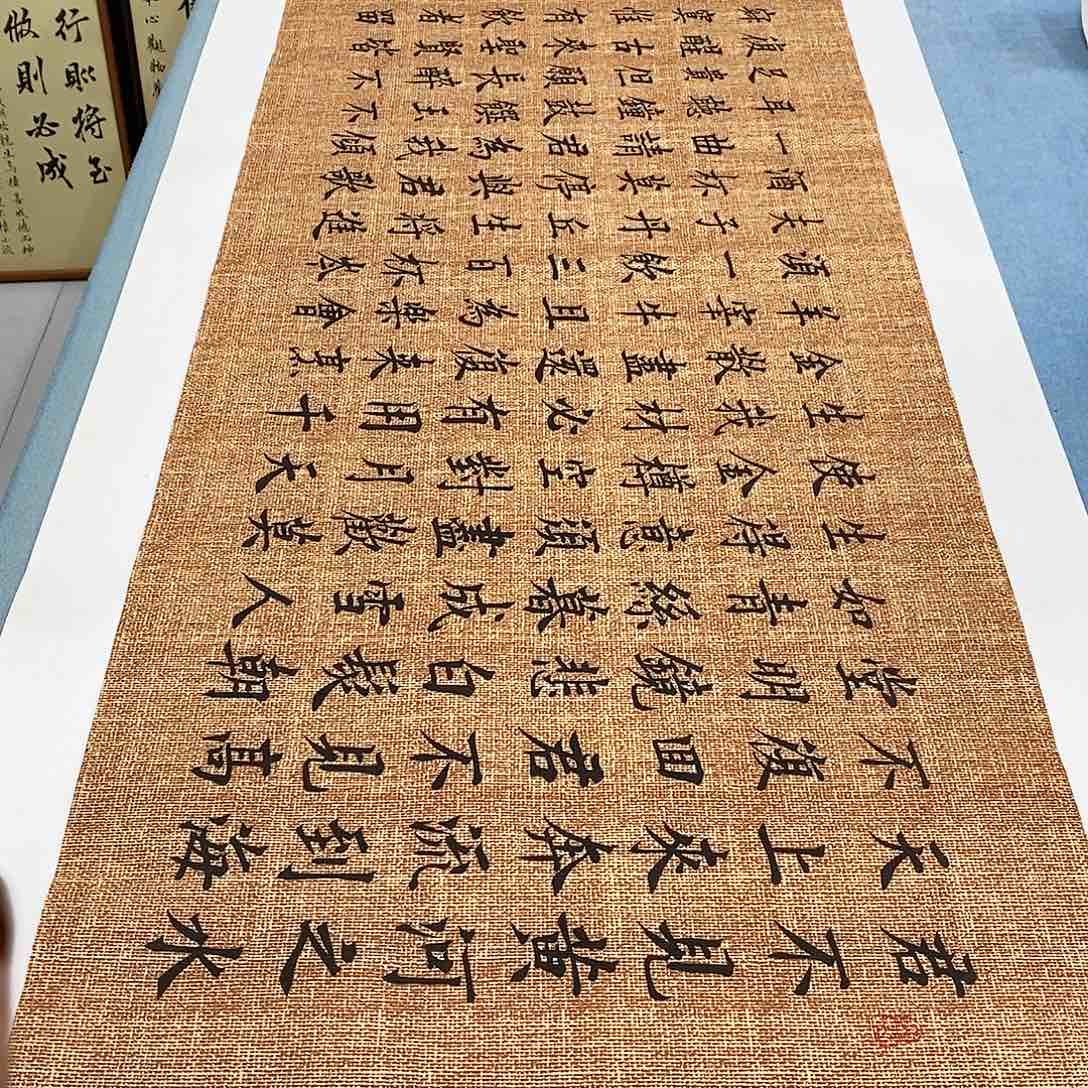 君不見黃河之水
天上來奔流到海
不復回君不見高
堂明鏡悲白髮朝
如青絲暮成雪人
生得意須盡歡莫
使金罇空對月天
生我材必有用千
金散盡還復來烹
羊宰牛且為樂會
須一飲三百杯岑
夫子丹丘生將進
酒杯莫停與君歌
一曲請君為我傾
耳聽鐘鼓饌玉不
足貴但願長醉不
復醒古來聖賢皆
寂寞惟有飲者留
行則將至
做則必成